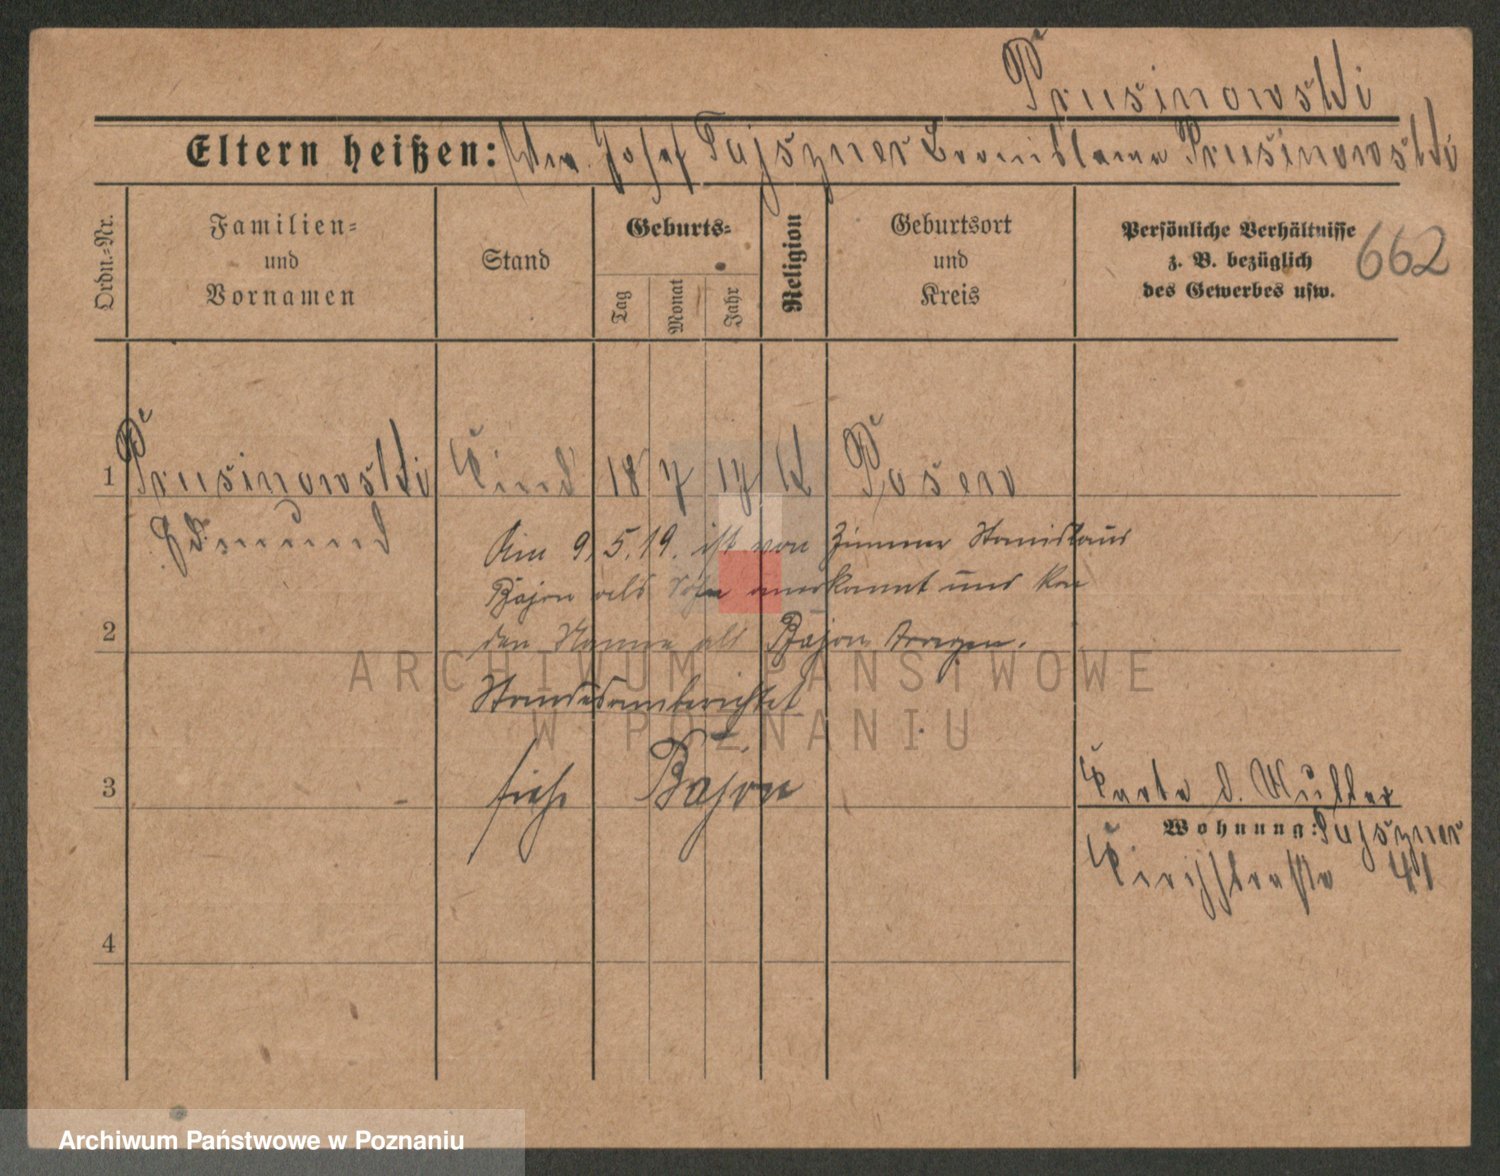 Prusinowski
Eltern heißen: Josef Pajszner Bronislawa Prusinowski
Ordn.-Nr.
Familien-
und
Vornamen
Stand
Geburts-
Tag
Monat
Jahr
Religion
Geburtsort
und
Kreis
Persönliche Verhältnisse
z. B. bezüglich
des Gewerbes usw.
662
1 Prusinowski Kind 18 7 17 k Posen
Edmund
Am 9.5.19. ist von Zimmer Stanislaus
Bajon als Sohn anerkannt und
den Namen als Bajon tragen.
2
ARCHIWUM PAŃSTWOWE
W POZNANIU
3 siehe Bajon
Karte d. Mutter
Wohnung: Pajszner
Kirchstraße 41
4
Archiwum Państwowe w Poznaniu